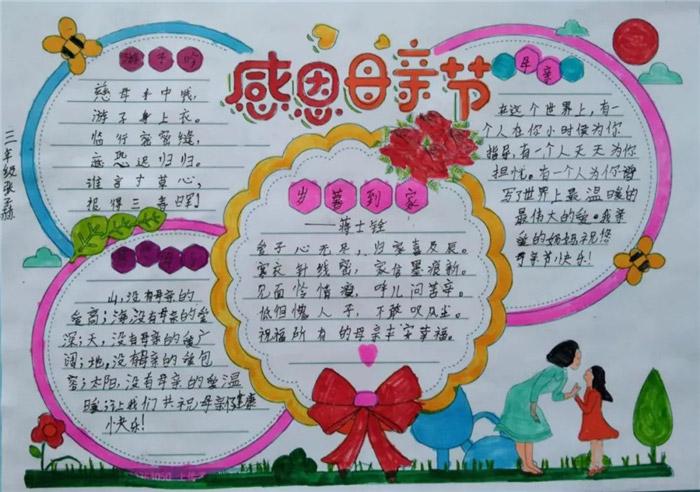 感恩母亲节
三年级
游子吟
慈母手中线，
游子身上衣。
临行密密缝，
意恐迟迟归。
谁言寸草心，
报得三春晖！
母亲
在这个世界上，有一
个人在你小时候为你
指导，有一个人天天为你
担忧，有一个人为你谱
写世界上最温暖的
最伟大的爱。我亲
爱的妈妈祝您
母亲节快乐！
岁暮到家
——蒋士铨
爱子心无尽，归家喜及辰。
寒衣针线密，家信墨痕新。
见面怜清瘦，呼儿问苦辛。
低徊愧人子，不敢叹风尘。
祝福所有的母亲幸福。
山，没有母亲的
爱高；海，没有母亲的爱
深；天，没有母亲的爱广
阔；地，没有母亲的爱包
容；太阳，没有母亲的爱温
暖；让我们共祝母亲健康
快乐！